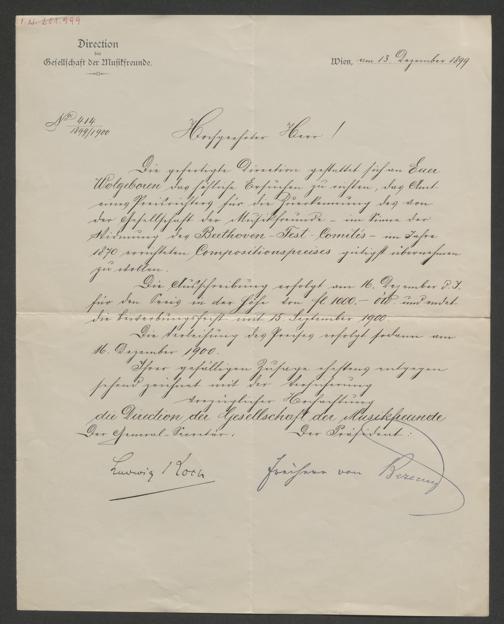 I.N. 201.999
Direction
der
Gesellschaft der Musikfreunde.
Wien, am 13. Dezember 1899
No. 414
1899/1900
Hochgeehrter Herr!
Die gefertigte Direction gestattet sich an Euer
Wolgeboren das höfliche Ersuchen zu richten, das Amt
eines Preisrichters für die Zuerkennung des von
der Gesellschaft der Musikfreunde – im Sinne der
Widmung des Beethoven-Fest-Comités – im Jahre
1870 errichteten Compositionspreises gütigst übernehmen
zu wollen.
Die Ausschreibung erfolgt am 16. Dezember d. J.
für den Preis in der Höhe von fl 1000.– öW und endet
die Bewerbungsfrist mit 15. September 1900.
Die Verleihung des Preises erfolgt sodann am
16. Dezember 1900.
Ihrer gefälligen Zusage ehestens entgegen
sehend zeichnet mit der Versicherung
vorzüglicher Hochachtung
die Direction der Gesellschaft der Musikfreunde
Der General-Secretär. Der Präsident:
Ludwig Koch Freiherr von Bezecny